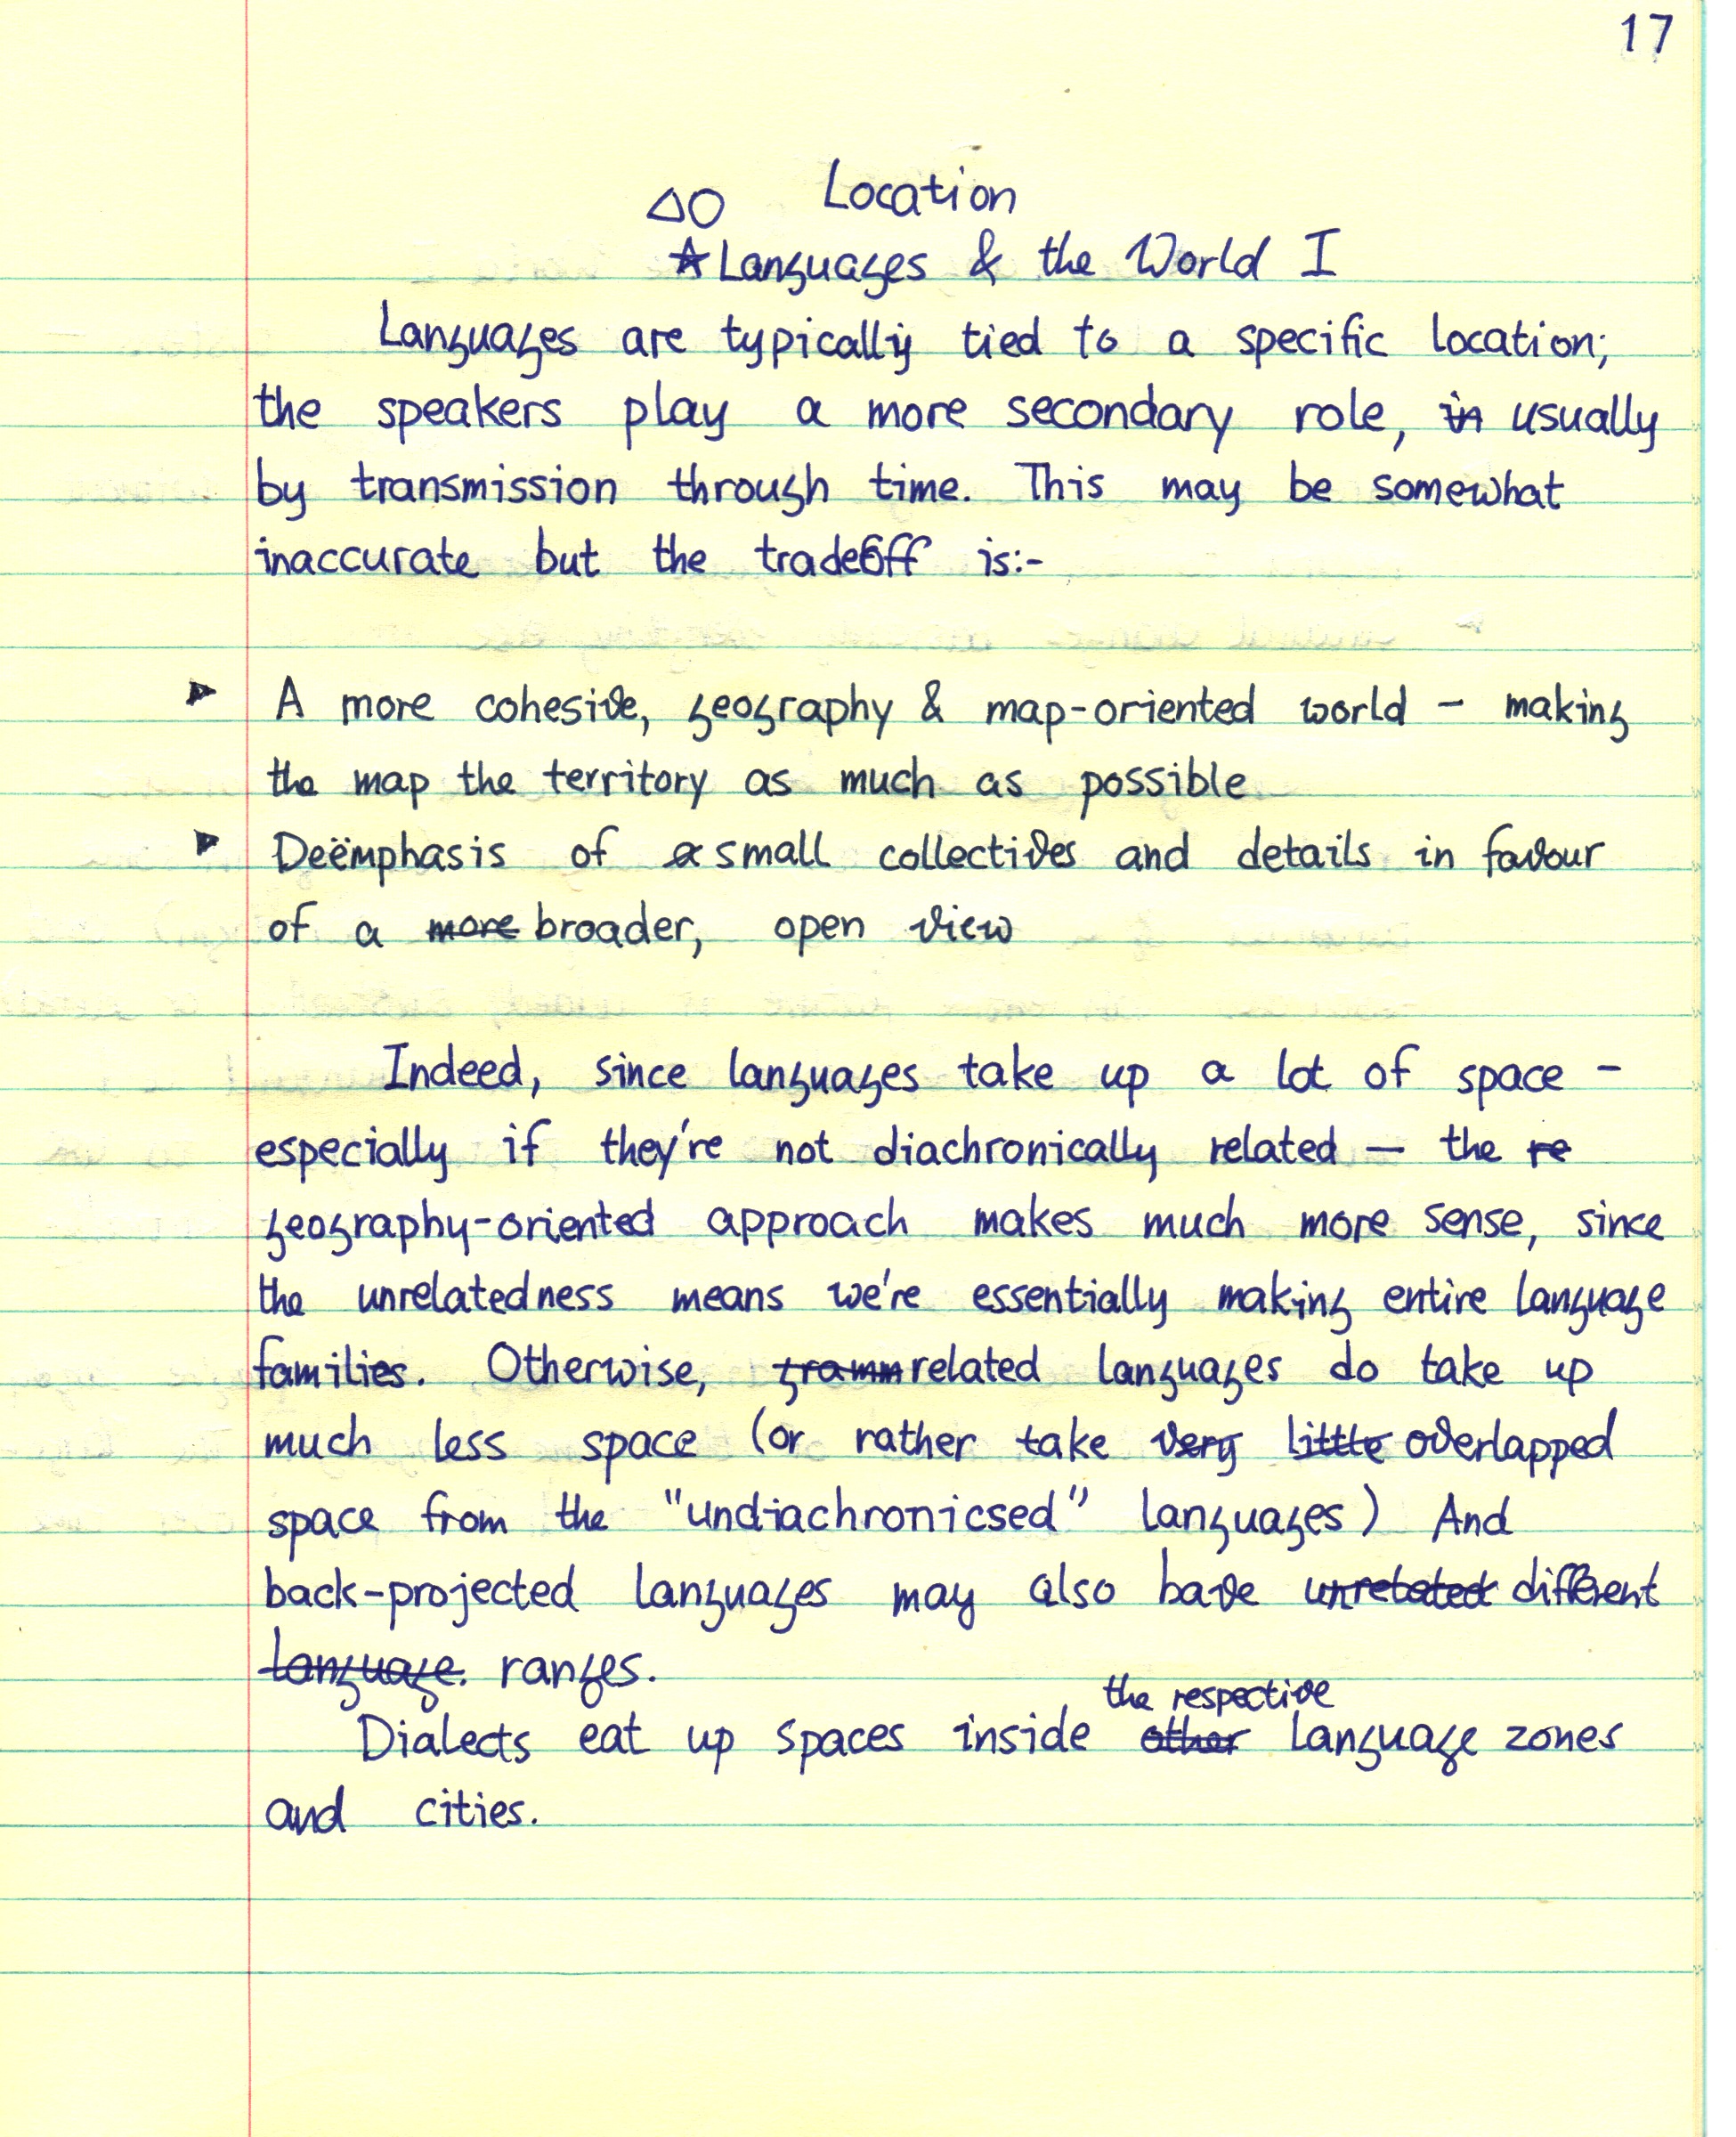 17
△○ Location
☆Languages & the World I
Languages are typically tied to a specific location;
the speakers play a more secondary role, in usually
by transmission through time. This may be somewhat
inaccurate but the tradeoff is:-
► A more cohesive, geography & map-oriented world - making
the map the territory as much as possible
► Deëmphasis of a small collectives and details in favour
of a more broader, open view
Indeed, since languages take up a lot of space -
especially if they're not diachronically related — the re
geography-oriented approach makes much more sense, since
the unrelatedness means we're essentially making entire language
families. Otherwise, gramm related languages do take up
much less space (or rather take very little overlapped
space from the "undiachronicsed" languages) And
back-projected languages may also have unrelated different
language. ranges.
the respective
Dialects eat up spaces inside other language zones
and cities.